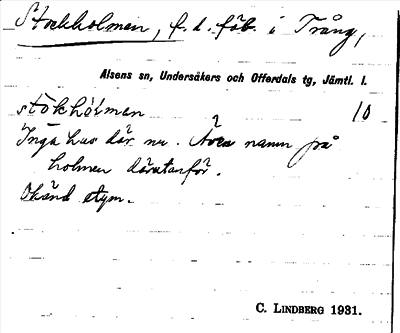 Stockholmen, f. d. fäb. i Trång,
Alsens sn, Undersåkers och Offerdals tg, Jämtl. l.
stòkhòlmen 10
Inga hus där nu. Även namn på
holmen därutanför.
Okänd etym.
C. LINDBERG 1931.